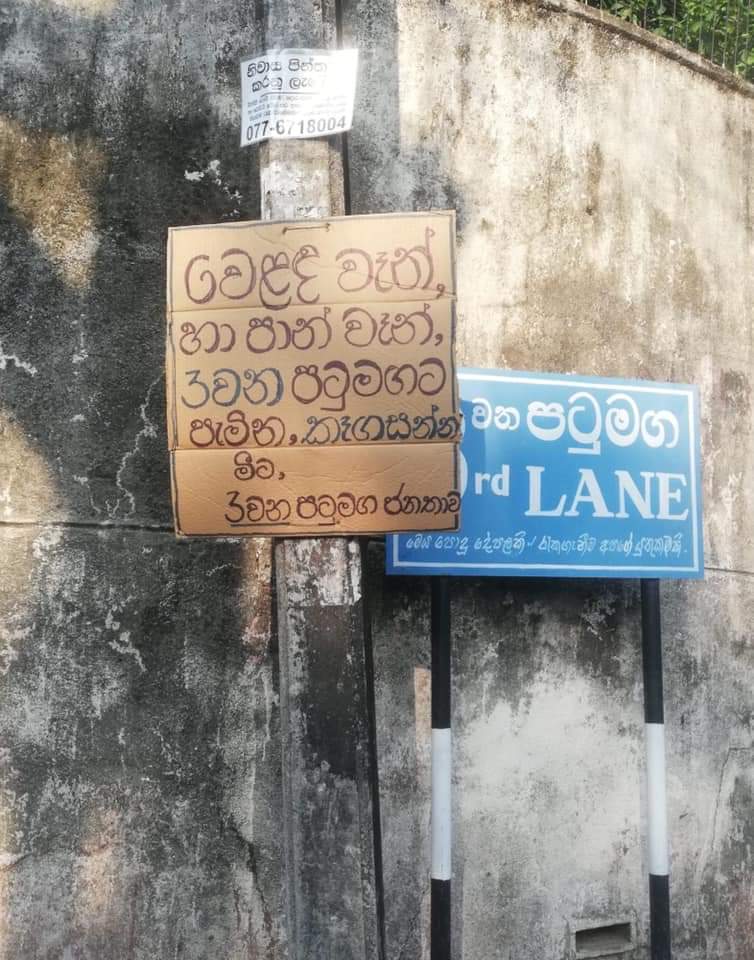 නිවාස පින්තාරු
කරනු ලැබේ
077-6718004
වෙළඳ වෑන්,
හා පාන් වෑන්,
3වන පටුමගට
පැමින, කෑගසන්න
මීට,
3වන පටුමග ජනතාව
වන පටුමග
rd LANE
මෙය පොදු දේපලකි රැකගැනීම අපගේ යුතුකමකි.